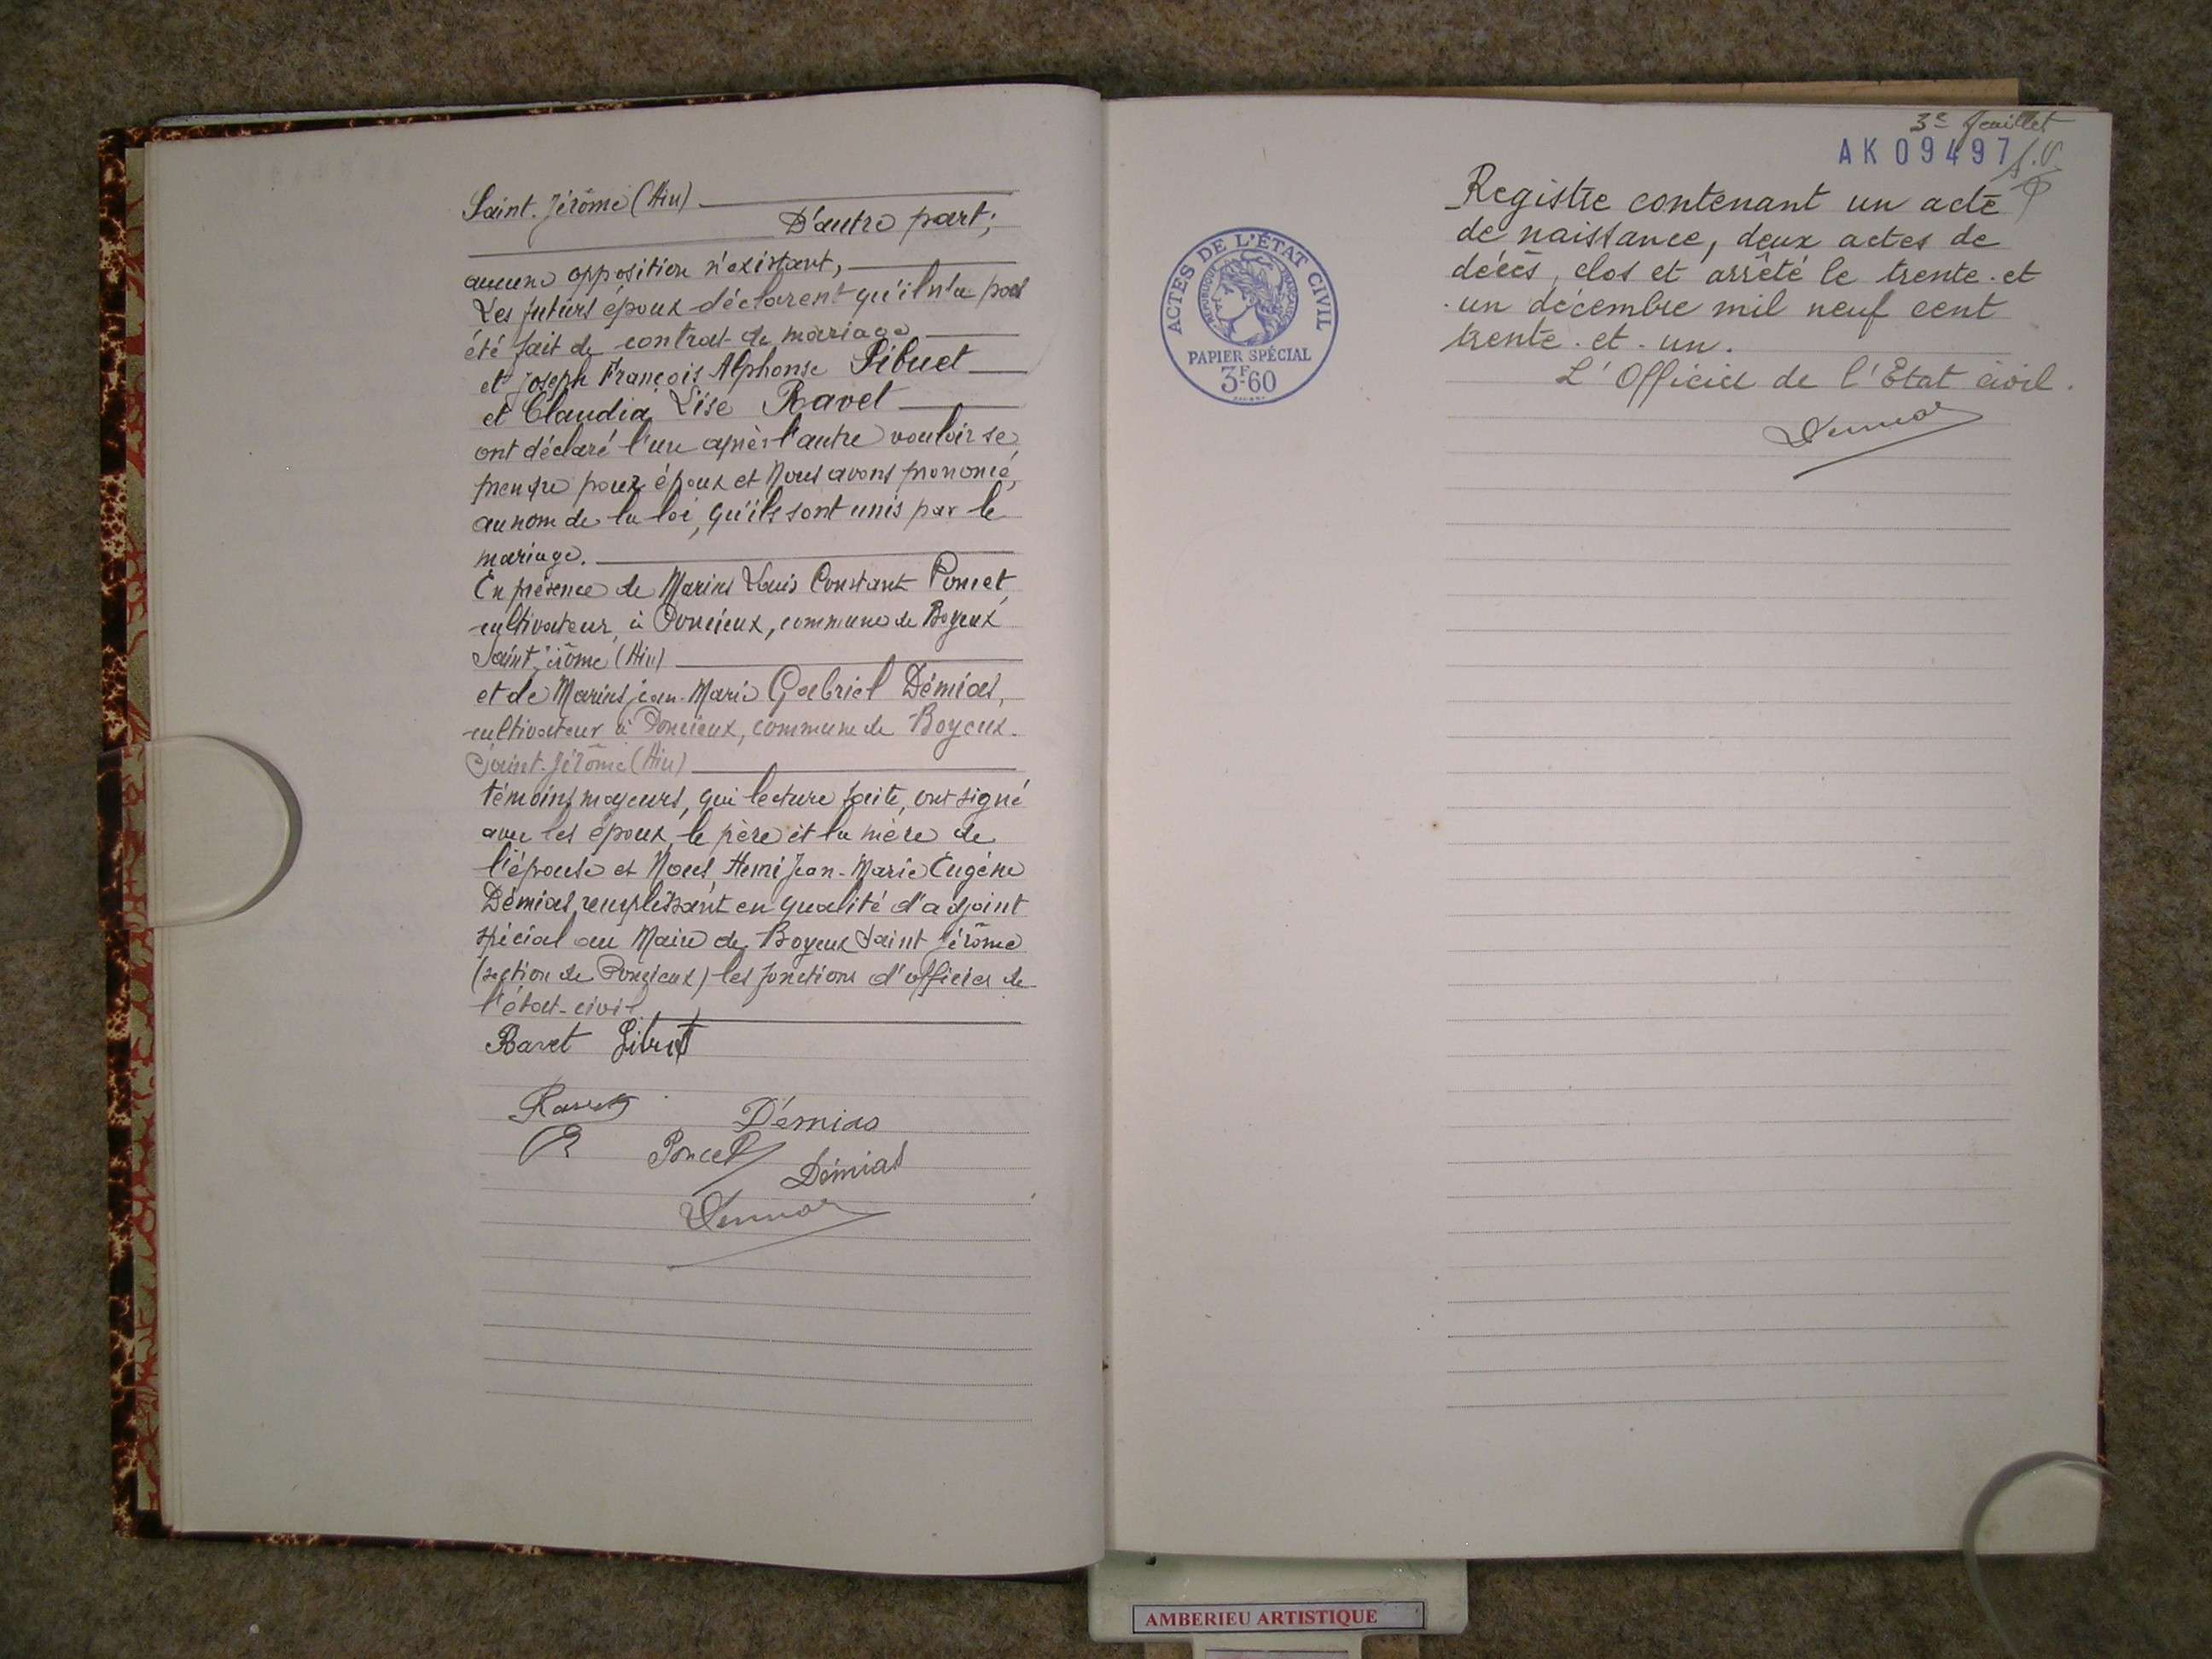 Saint-Jérôme (Ain)
D'autre part;
aucune opposition n'existant,
Les futurs époux déclarent qu'il n'a pas
été fait de contrat de mariage
et Joseph François Alphonse Pibuet
et Claudia Lise Ravet
ont déclaré l'un après l'autre vouloir se
prendre pour époux et Nous avons prononcé,
au nom de la loi, qu'ils sont unis par le
mariage.
En présence de Marius Louis Constant Poncet,
cultivateur, à Poncieux, commune de Boyeux
Saint-Jérôme (Ain)
et de Marius Jean-Marie Gabriel Démias,
cultivateur à Poncieux, commune de Boyeux-
Saint-Jérôme (Ain)
témoins majeurs, qui lecture faite, ont signé
avec les époux, le père et la mère de
l'épouse et Nous, Henri Jean-Marie Eugène
Démias, remplissant en qualité d'adjoint
spécial au Maire de Boyeux Saint Jérôme
(section de Poncieux) les fonctions d'officier de
l'état-civil
Ravet Pibuet
Ravet
Démias
Poncet
Démias
Démias
3e feuillet
AK 09497
Registre contenant un acte
de naissance, deux actes de
décès, clos et arrêté le trente-et
-un décembre mil neuf cent
trente-et-un.
L'Officier de l'Etat civil.
Démias
ACTES DE L'ÉTAT CIVIL
REPUBLIQUE FRANÇAISE
PAPIER SPÉCIAL
3F60
AMBERIEU ARTISTIQUE